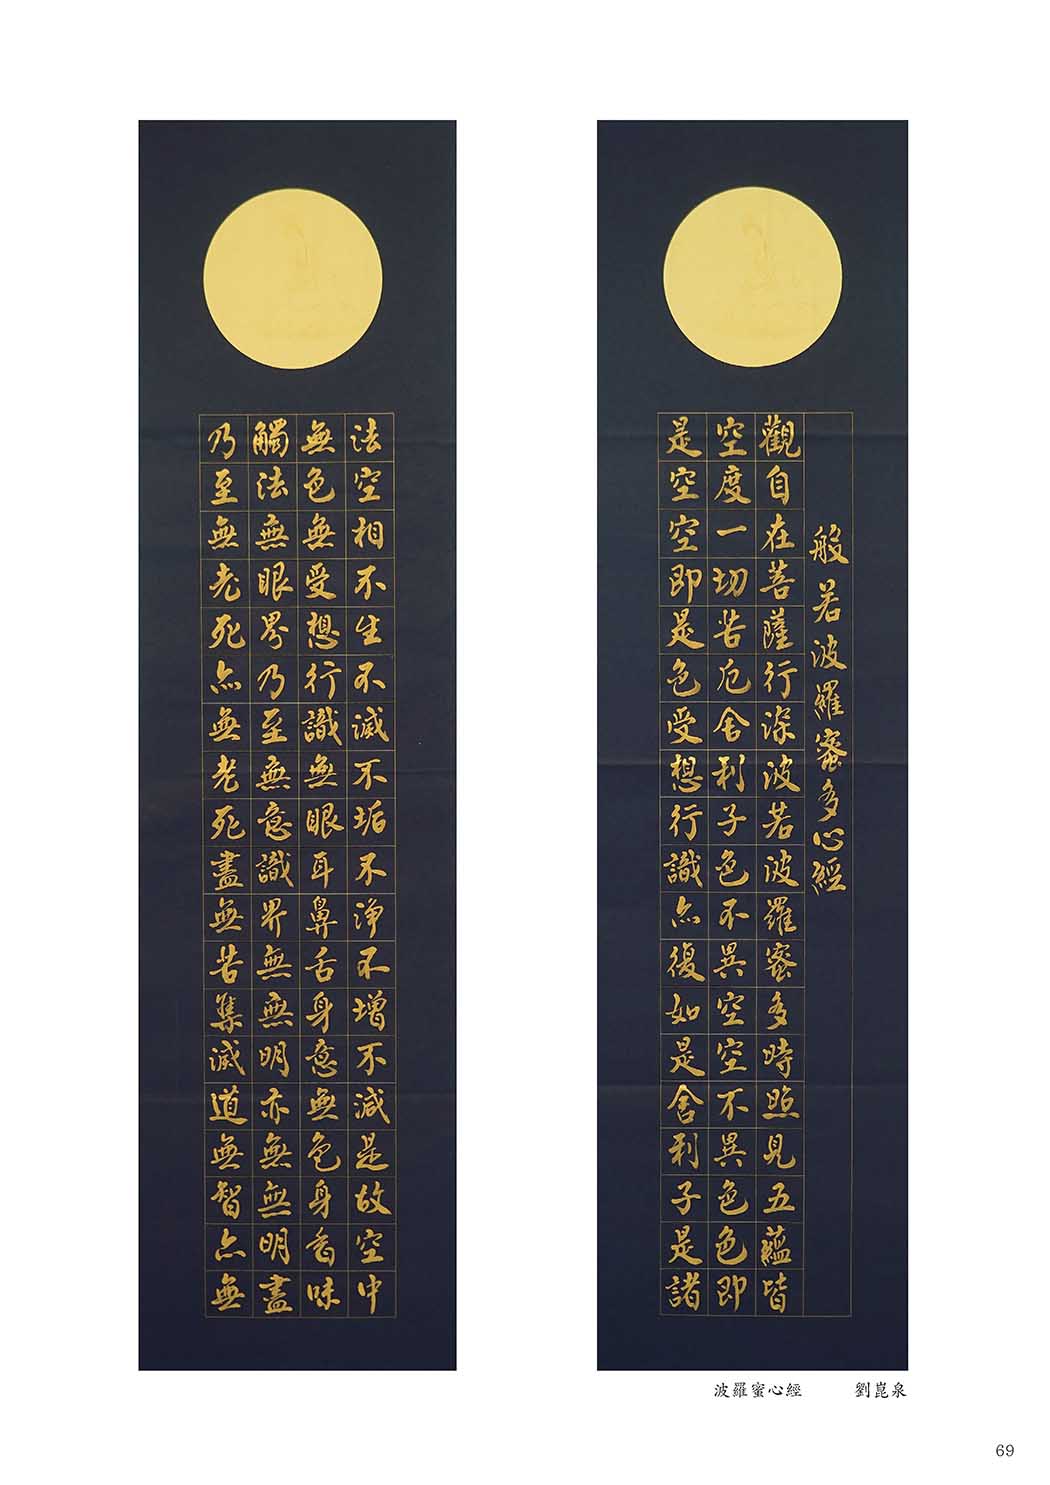 般若波羅蜜多心經
觀自在菩薩行深波若波羅蜜多時照見五蘊皆
空度一切苦厄舍利子色不異空空不異色色即
是空空即是色受想行識亦復如是舍利子是諸
法空相不生不滅不垢不淨不增不減是故空中
無色無受想行識無眼耳鼻舌身意無色身香味
觸法無眼界乃至無意識界無無明亦無無明盡
乃至無老死亦無老死盡無苦集滅道無智亦無
波羅蜜心經 劉崑泉
69